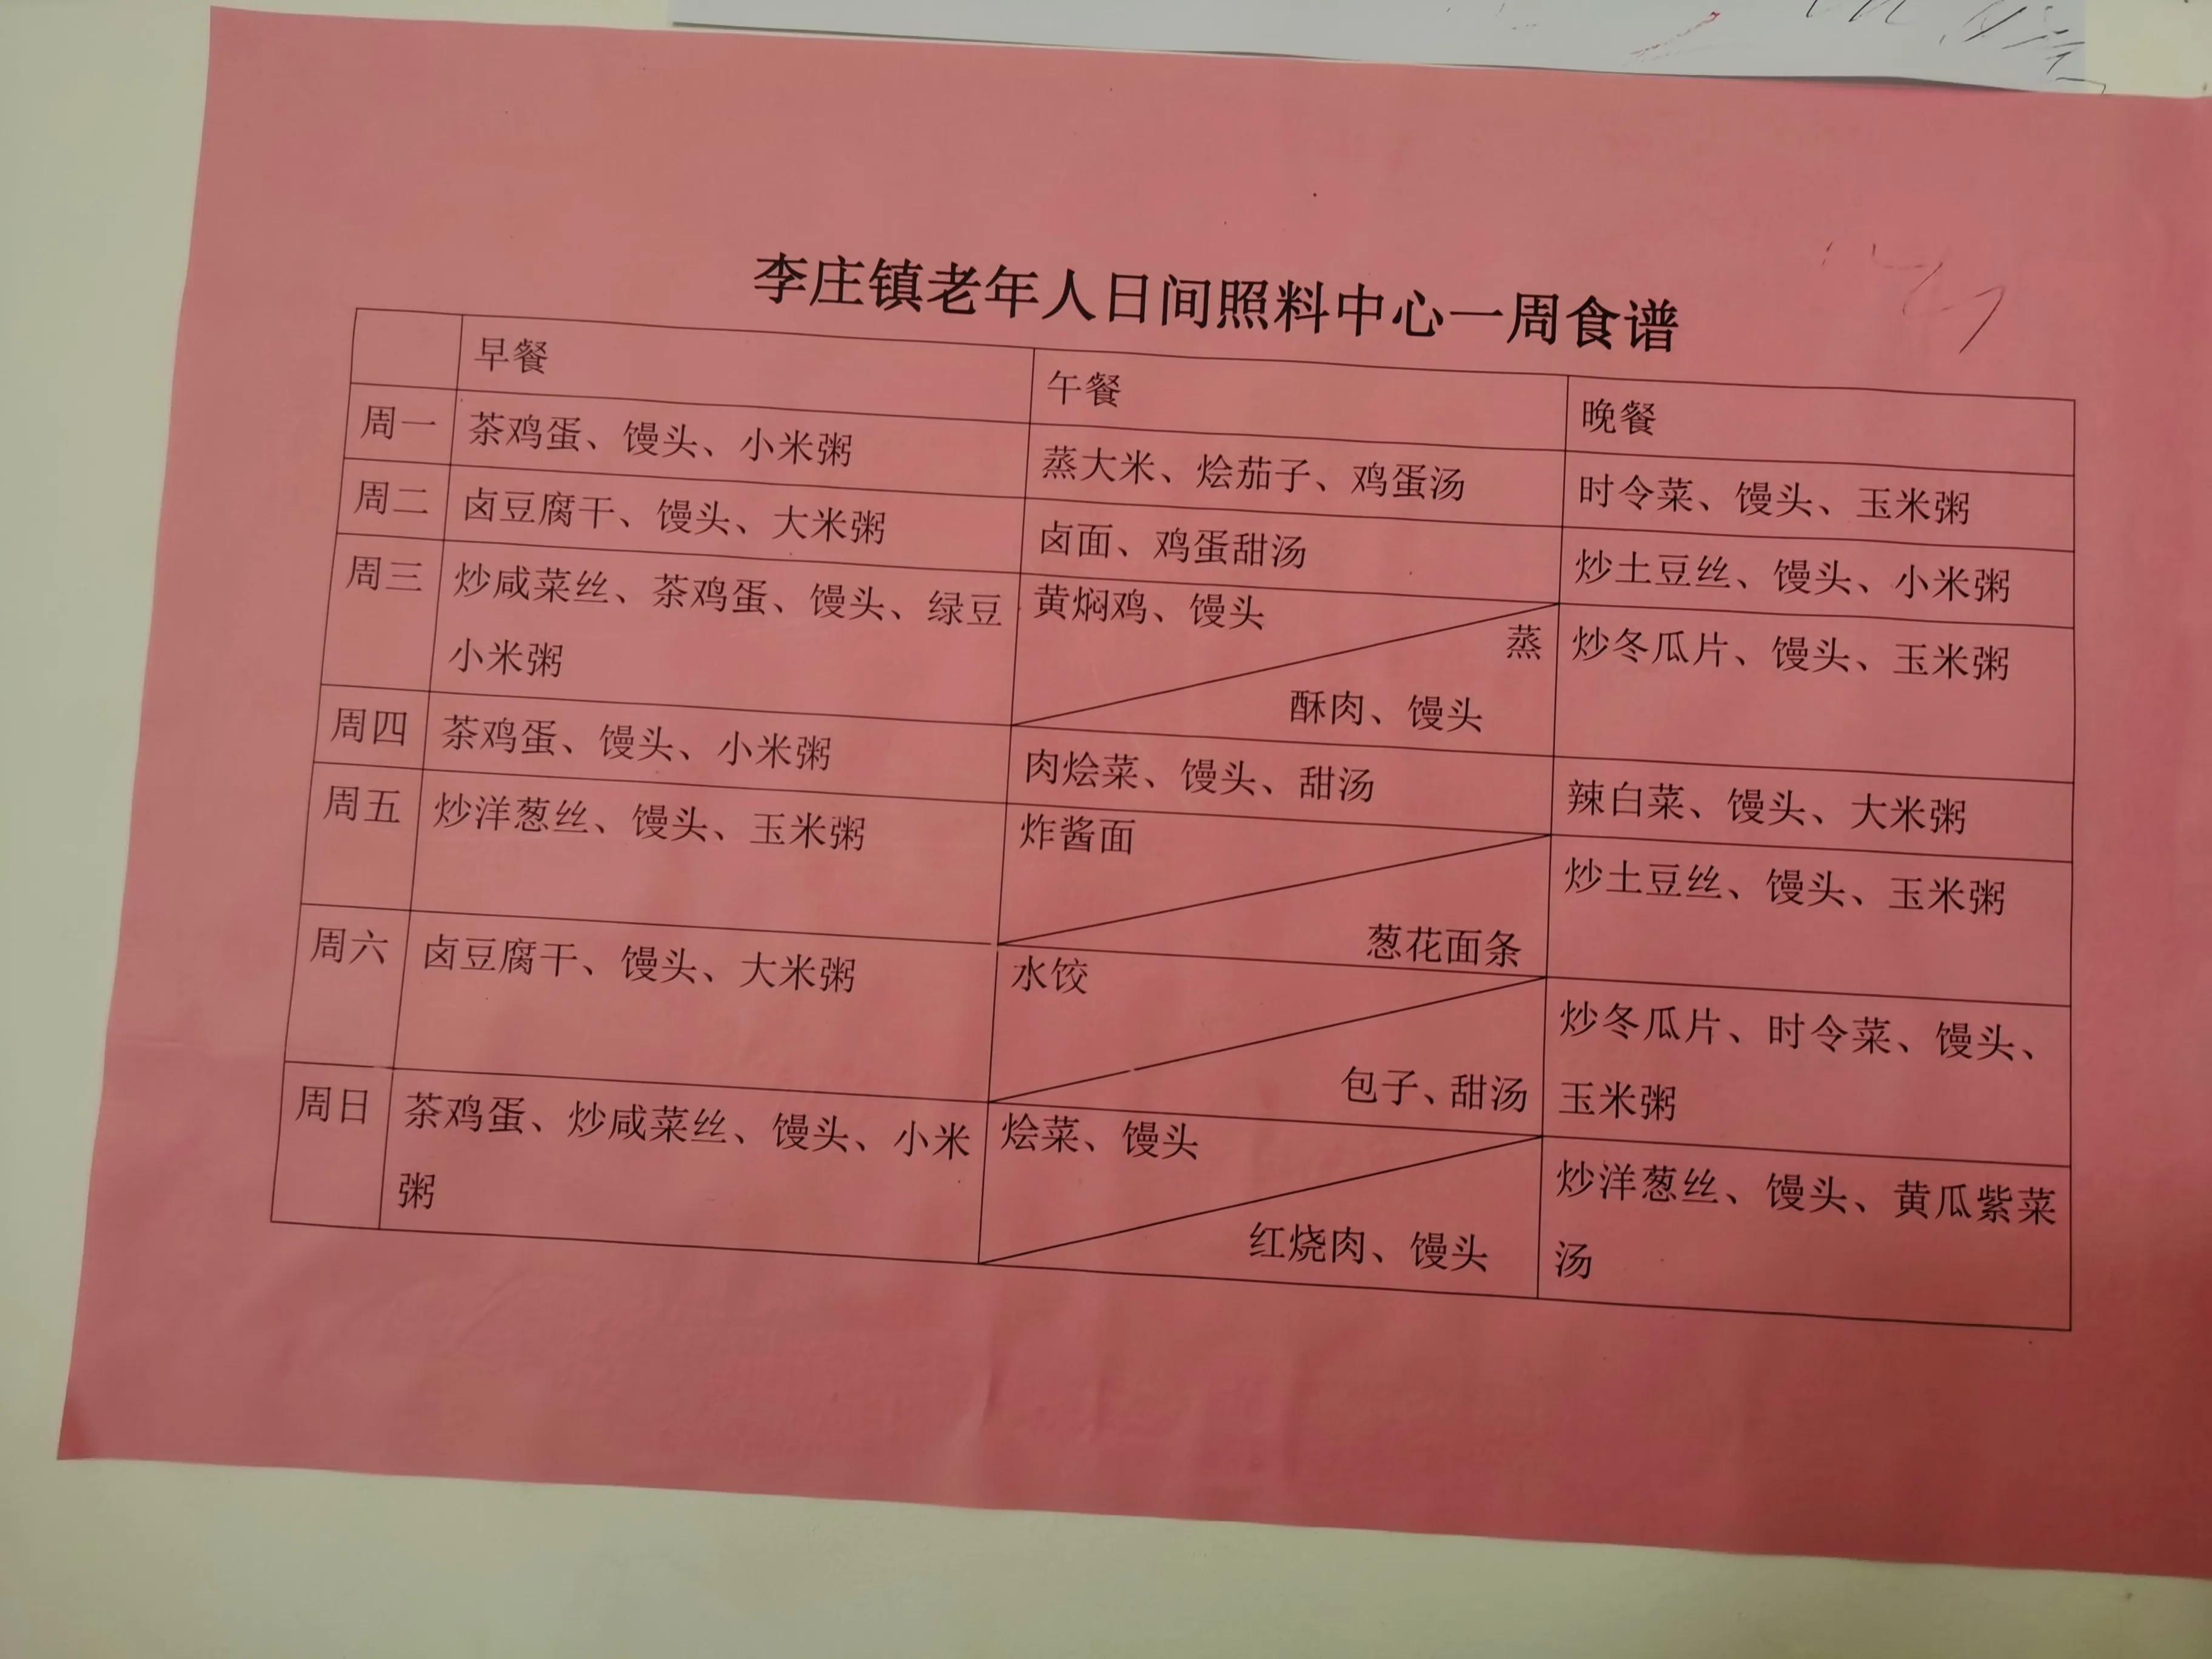 李庄镇老年人日间照料中心一周食谱
早餐
午餐
晚餐
周一
茶鸡蛋、馒头、小米粥
蒸大米、烩茄子、鸡蛋汤
时令菜、馒头、玉米粥
周二
卤豆腐干、馒头、大米粥
卤面、鸡蛋甜汤
炒土豆丝、馒头、小米粥
周三
炒咸菜丝、茶鸡蛋、馒头、绿豆
小米粥
黄焖鸡、馒头
蒸
酥肉、馒头
炒冬瓜片、馒头、玉米粥
周四
茶鸡蛋、馒头、小米粥
肉烩菜、馒头、甜汤
辣白菜、馒头、大米粥
周五
炒洋葱丝、馒头、玉米粥
炸酱面
葱花面条
炒土豆丝、馒头、玉米粥
周六
卤豆腐干、馒头、大米粥
水饺
包子、甜汤
炒冬瓜片、时令菜、馒头、
玉米粥
周日
茶鸡蛋、炒咸菜丝、馒头、小米
粥
烩菜、馒头
红烧肉、馒头
炒洋葱丝、馒头、黄瓜紫菜
汤